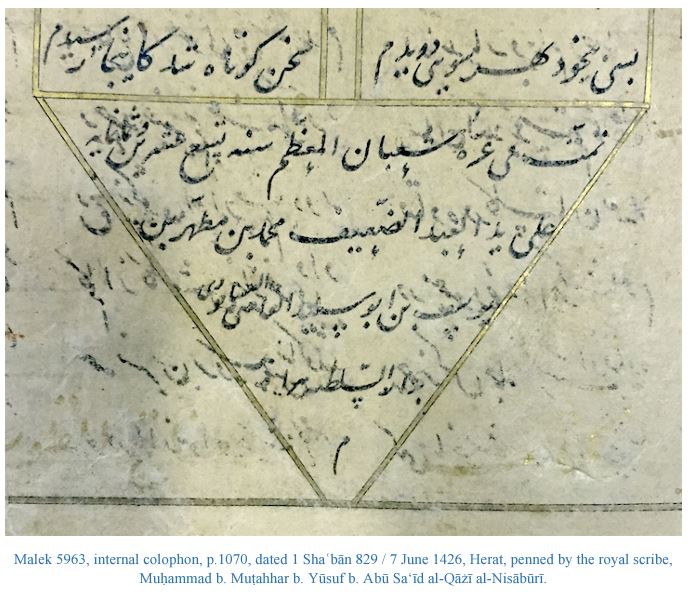 بسی بیخود بهر سویی دویدم سخن کوتاه شد کاینجا رسیدم
تمت فی غره شعبان المعظم سنه تسع عشرین و ثمانمایه
علی ید العبد الضعیف محمد بن مطهر بن
یوسف بن ابو سعید القاضی
بدار السلطنه هراة
م
Malek 5963, internal colophon, p.1070, dated 1 Shaʿbān 829 / 7 June 1426, Herat, penned by the royal scribe,
Muḥammad b. Muṭahhar b. Yūsuf b. Abū Saʿīd al-Qāżī al-Nīsābūrī.